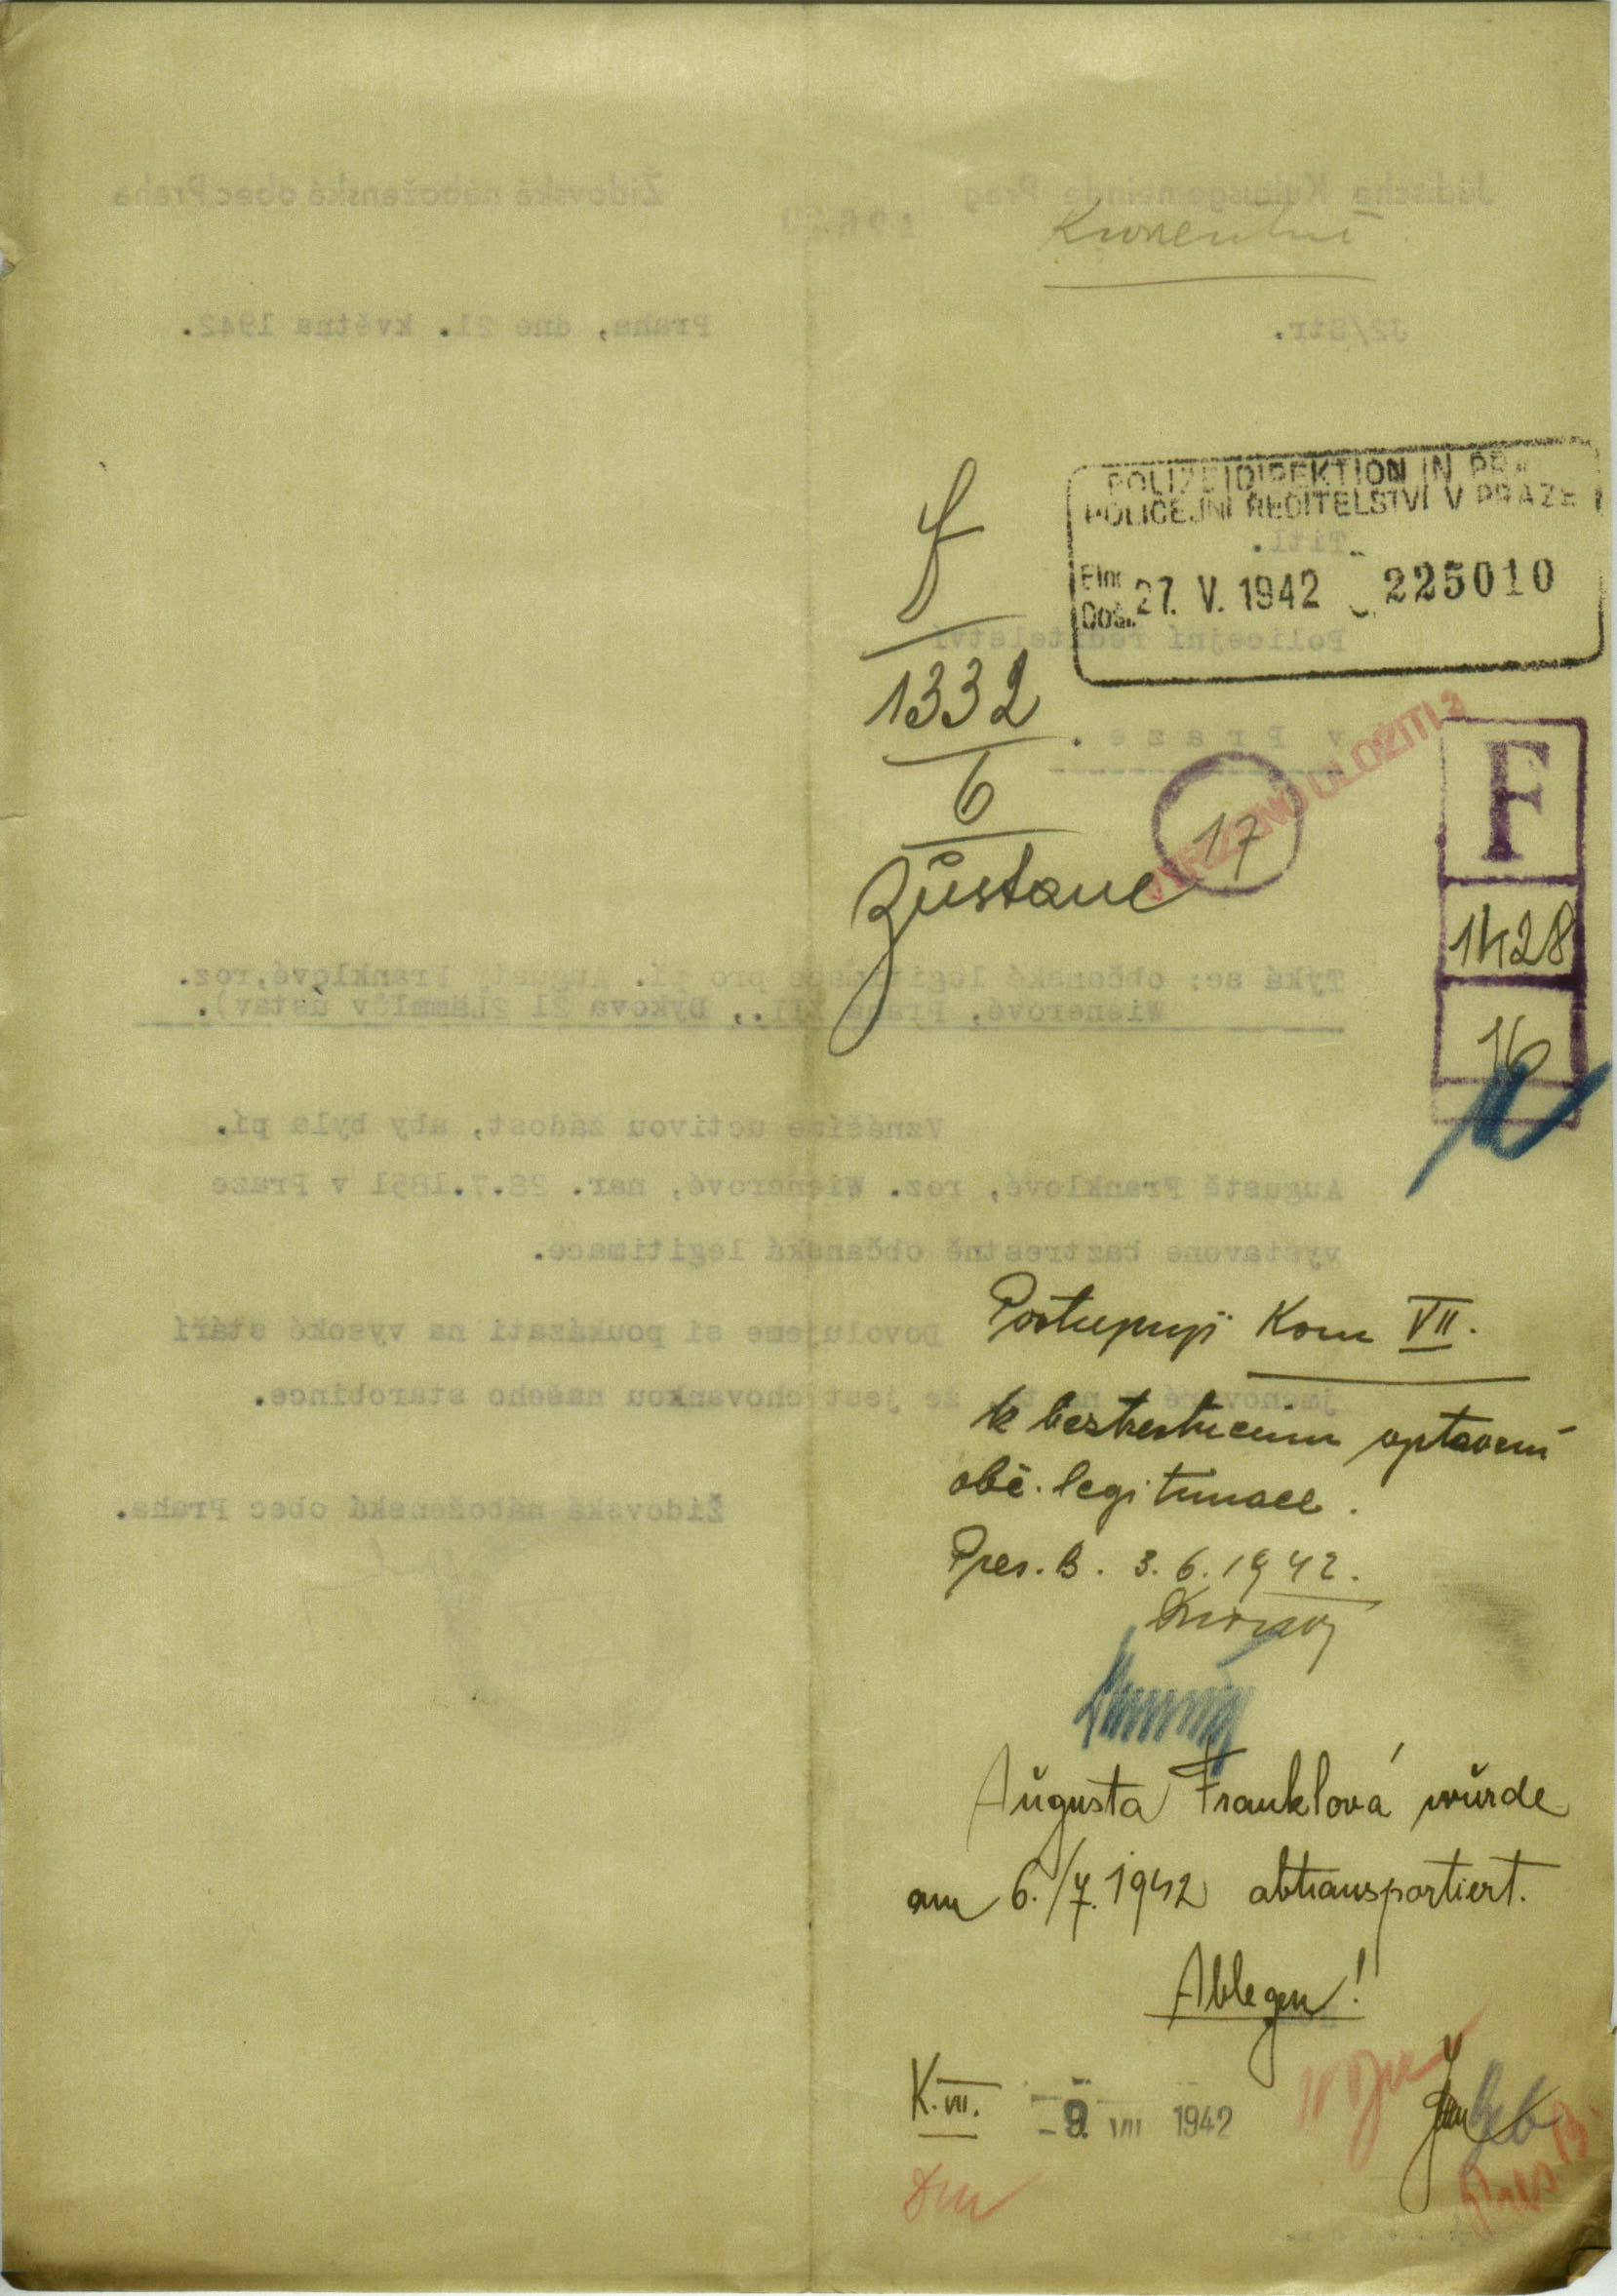 Jüdische Kultusgemeinde Prag
Židovské náboženská obec Praha
JZ/Str.
Praha, dne 21. května 1942.
POLIZEIDIREKTION IN PRA
POLICEJNÍ ŘEDITELSTVÍ V PRAZE
27. V. 1942 225010
Došlo
Titl.
Policejní ředitelství
v Praze.
f
1332
6
zůstane
17
VYŘÍZENO ULOŽITI
F
1428
16
Týká se: občanské legitimace pro pí. Augustu Franklové, roz.
Wienerové, Praha XII., Bykova 21
ústav).
Vznášíme uctivou žádost, aby byla pí.
Augustě Franklové, roz. Wienerové, nar. 28.7.1851 v Praze
vystavena beztrestně občanská legitimace.
Dovolujeme si poukázati na vysoké stáří
jmenované a na to, že jest chovankou našeho starobince.
Židovská náboženská obec Praha.
Postupuji Kom VII.
k beztrestnému vystavení
obč. legitimace.
Pres. B. 3.6.1942.
Augusta Franklová wurde
am 6./7.1942 abtransportiert.
Ablegen!
K. VII. -9. VII 1942